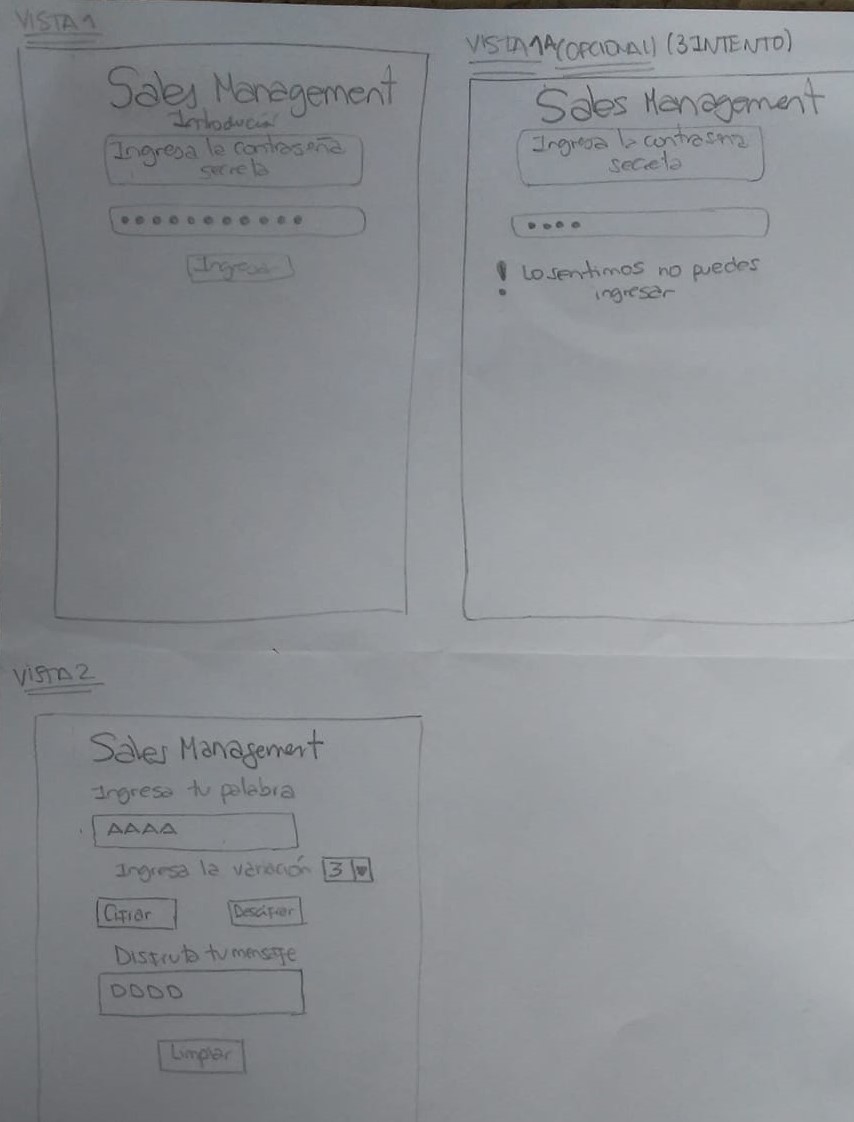 VISTA 1
Sales Management
Introducir
Ingresa la contraseña
secreta
Ingresar
VISTA 1A (OPCIONAL) (3 INTENTO)
Sales Management
Ingresa la contraseña
secreta
! Lo sentimos no puedes
ingresar
VISTA 2
Sales Management
Ingresa tu palabra
AAAA
Ingresa la variación 3
Cifrar
Descifrar
Disfruta tu mensaje
DDDD
Limpiar